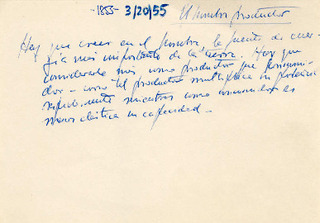 -1855- 3/20/55 El hombre productor
Hay que creer en el hombre, la fuente de ener-
gía más importante de la tierra. Hay que
considerarlo más como productor que consumi-
dor - como el productor multiplica su potencia
mientras como consumidor es
menos elástica su capacidad.